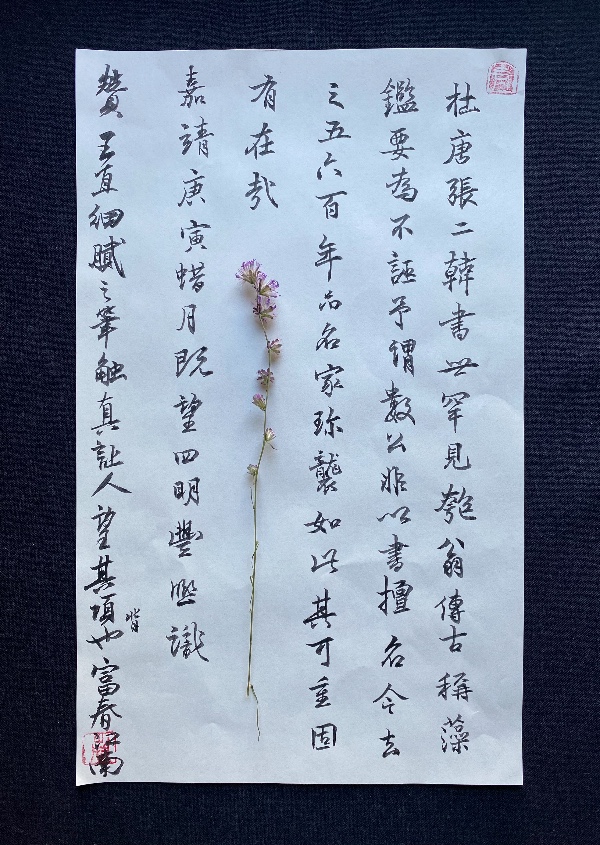 杜唐張二韓書世罕見匏翁傳古稱藻
鑑要為不誣予謂數公非以書擅名今去
之五六百年品名家珍襲如此其可重固
有在哉
嘉靖庚寅蜡月既望四明豐熙識
贊王直細膩之筆触真讓人望其項背也富春江南